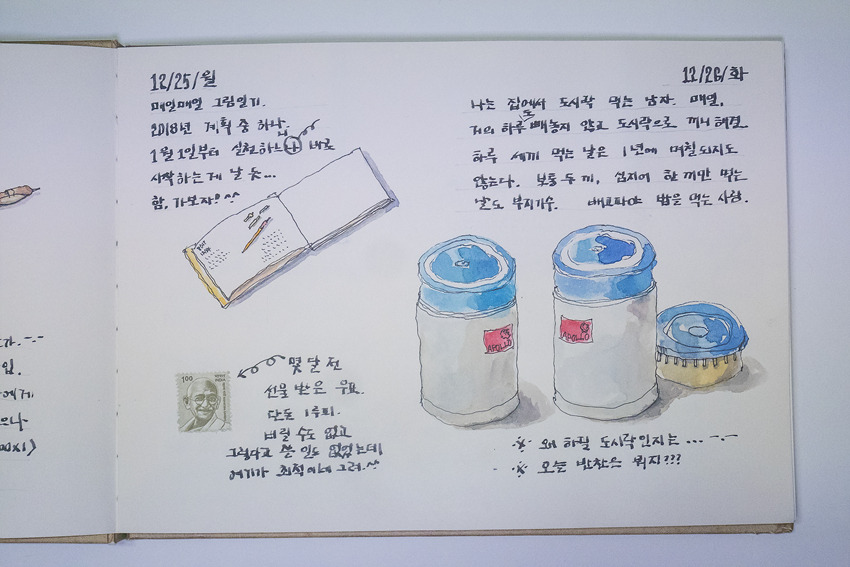 12/25/월
매일매일 그림일기.
2018년 계획 중 하나.
1월 1일부터 실천하느니 나 내로
시작하는 게 날 듯...
함, 가보자!^^
몇 달 전
선물 받은 우표.
단돈 1루피.
버릴 수도 없고
그렇다고 쓸 일도 없었는데
여기가 최적이네 그려.^^
1.00
APOLLO
APOLLO
12/26/화
나는 집에서 도시락 먹는 남자. 매일,
거의 하루도 빼놓지 않고 도시락으로 끼니 해결.
하루 세끼 먹는 날은 1년에 며칠 되지도
않는다. 보통 두 끼, 심지어 한 끼만 먹는
날도 부지기수. 배고파야 밥을 먹는 사람.
※ 왜 하필 도시락인지는... -.-
※ 오늘 반찬은 뭐지???